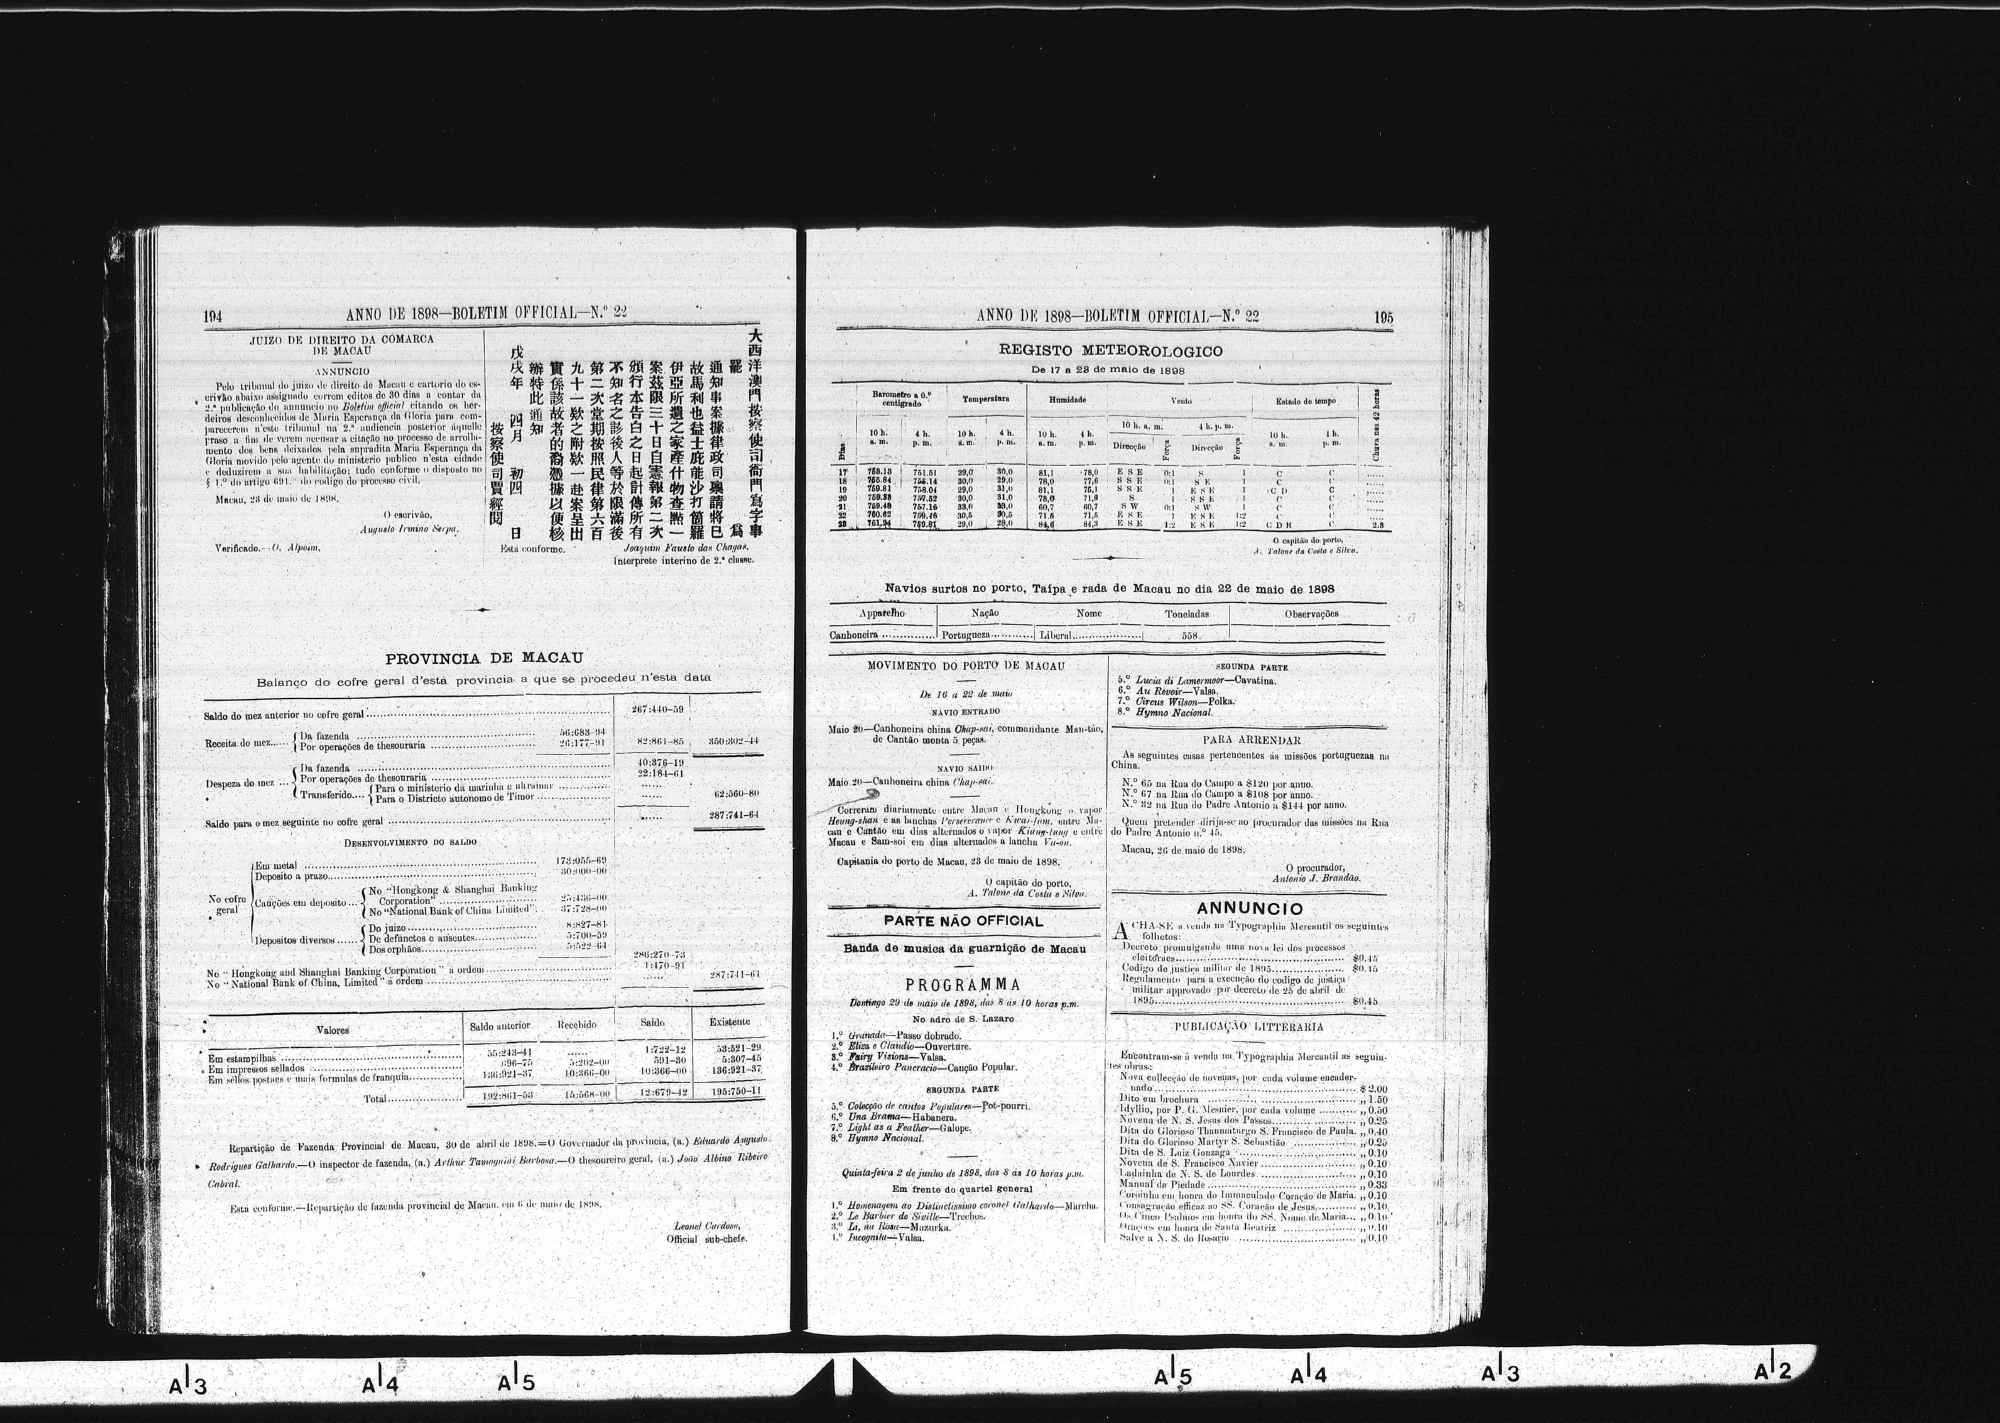 194
ANNO DE 1898—BOLETIM OFFICIAL—N.º 22
JUIZO DE DIREITO DA COMARCA
DE MACAU
ANNUNCIO
Pelo tribunal do juizo de direito de Macau e cartorio do es-
crivão abaixo assignado correm editos de 30 dias a contar da
2.ª publicação do annuncio no Boletim official citando os her-
deiros desconhecidos de Maria Esperança da Gloria para com-
parecerem n'este tribunal na 2.ª audiencia posterior áquelle
praso a fim de verem accusar a citação no processo de arrola-
mento dos bens deixados pela supradita Maria Esperança da
Gloria movido pelo agente do ministerio publico n'esta cidade
e deduzirem a sua habilitação; tudo conforme o disposto no
§ 1.º do artigo 691.º do codigo do processo civil.
Macau, 23 de maio de 1898.
O escrivão,
Augusto Irmino Serpa.
Verificado.—O. Alpoim.
大西洋澳門按察使司衙門寫字事
羅 爲
通知事案據律政司稟請將已
故馬利也益士庇能沙打箇羅
伊亞所遺之家產什物查點一
案茲限三十日自憲報第二次
頒行本告白之日起計傳所有
不知名之該後人等於限滿後
第二次堂期按照民律第六百
九十一欵之附欵一赴案呈出
實係該故者的裔憑據以便核
辦特此通知
戊戌年 四月 初四 日
按察使司賈經閱
Está conforme.
Joaquim Fausto das Chagas.
Interprete interino de 2.ª classe.
PROVINCIA DE MACAU
Balanço do cofre geral d'esta provincia a que se procedeu n'esta data
Saldo do mez anterior no cofre geral 267:440-59
Receita do mez Da fazenda 56:683-94
Por operações de thesouraria 26:177-91 82:861-85 350:302-44
Despeza do mez Da fazenda 40:376-19
Por operações de thesouraria 22:184-61
Transferido Para o ministerio da marinha e ultramar ......
Para o Districto autonomo de Timor ...... 62:560-80
Saldo para o mez seguinte no cofre geral ...... 287:741-64
DESENVOLVIMENTO DO SALDO
No cofre geral
Em metal 173:055-69
Deposito a prazo 30:000-00
Cauções em deposito No "Hongkong & Shanghai Banking
Corporation" 25:436-00
No "National Bank of China Limited" 37:728-00
Depositos diversos Do juizo 8:827-81
De defunctos e ausentes 5:700-59
Dos orphãos 5:522-64
286:270-73
No "Hongkong and Shanghai Banking Corporation" á ordem 1:470-91
No "National Bank of China, Limited" á ordem ...... 287:741-64
Valores Saldo anterior Recebido Saldo Existente
Em estampilhas 55:243-41 ...... 1:722-12 53:521-29
Em impressos sellados 696-75 5:202-00 591-30 5:307-45
Em sellos postaes e mais formulas de franquia 136:921-37 10:366-00 10:366-00 136:921-37
Total 192:861-53 15:568-00 12:679-42 195:750-11
Repartição de Fazenda Provincial de Macau, 30 de abril de 1898.=O Governador da provincia, (a.) Eduardo Augusto
Rodrigues Galhardo.—O inspector de fazenda, (a.) Arthur Tamagnini Barbosa.—O thesoureiro geral, (a.) João Albino Ribeiro
Cabral.
Está conforme.—Repartição de fazenda provincial de Macau, em 6 de maio de 1898.
Leonel Cardoso,
Official sub-chefe.
ANNO DE 1898—BOLETIM OFFICIAL—N.º 22
195
REGISTO METEOROLOGICO
De 17 a 23 de maio de 1898
Dias Barometro a 0.º centigrado Temperatura Humidade Vento Estado do tempo Chuva nas 42 horas
10 h. a. m. 4 h. p. m. 10 h. a. m. 4 h. p. m. 10 h. a. m. 4 h. p. m. 10 h. a. m. 4 h. p. m. 10 h. a. m. 4 h. p. m.
Direcção Força Direcção Força
17 753.13 751.51 29,0 30,0 81,1 78,0 E S E 0:1 S 1 C C ......
18 755.84 755.14 30,0 29,0 78,0 77,6 S S E 0:1 S E 1 C C ......
19 759.81 758.04 29,0 31,0 81,1 75,1 S S E 1 E S E 1 C D C ......
20 759.38 757.52 30,0 31,0 78,0 71,8 S 1 S S E 1 C C ......
21 759.49 757.16 33,0 33,0 60,7 60,7 S W 0:1 S W 1 C C ......
22 760.62 759.46 30,5 30,5 71,5 71,5 E S E 1 E S E 1:2 C C ......
23 761.94 759.81 29,0 28,0 84,6 84,3 E S E 1:2 E S E 1:2 C D R C 2.8
O capitão do porto,
A. Talone da Costa e Silva.
Navios surtos no porto, Taipa e rada de Macau no dia 22 de maio de 1898
Apparelho Nação Nome Toneladas Observações
Canhoneira Portugueza Liberal 558
MOVIMENTO DO PORTO DE MACAU
De 16 a 22 de maio
NAVIO ENTRADO
Maio 20—Canhoneira china Chap-sai, commandante Man-tão,
de Cantão monta 5 peças.
NAVIO SAIDO
Maio 20—Canhoneira china Chap-sai.
Correram diariamente entre Macau e Hongkong o vapor
Heung-shan e as lanchas Perseverance e Kwai-lum, entre Ma-
cau e Cantão em dias alternados o vapor Kiung-tung e entre
Macau e Sam-soi em dias alternados a lancha Vu-on.
Capitania do porto de Macau, 23 de maio de 1898.
O capitão do porto,
A. Talone da Costa e Silva.
PARTE NÃO OFFICIAL
Banda de musica da guarnição de Macau
PROGRAMMA
Domingo 29 de maio de 1898, das 8 ás 10 horas p.m.
No adro de S. Lazaro
1.º Granada—Passo dobrado.
2.º Eliza e Claudio—Ouverture.
3.º Fairy Visions—Valsa.
4.º Brazileiro Pancracio—Canção Popular.
SEGUNDA PARTE
5.º Colecção de cantos Populares—Pot-pourri.
6.º Una Brama—Habanera.
7.º Light as a Feather—Galope.
8.º Hymno Nacional.
Quinta-feira 2 de junho de 1898, das 8 ás 10 horas p.m.
Em frente do quartel general
1.º Homenagem ao Distinctissimo coronel Galhardo—Marcha.
2.º Le Barbier de Siville—Trechos.
3.º La Rosa—Mazurka.
4.º Incognita—Valsa.
SEGUNDA PARTE
5.º Lucia di Lamermoor—Cavatina.
6.º Au Revoir—Valsa.
7.º Circus Wilson—Polka.
8.º Hymno Nacional.
PARA ARRENDAR
As seguintes casas pertencentes ás missões portuguezas na
China.
N.º 65 na Rua do Campo a $120 por anno.
N.º 67 na Rua do Campo a $108 por anno.
N.º 32 na Rua do Padre Antonio a $144 por anno.
Quem pretender dirija-se ao procurador das missões na Rua
do Padre Antonio n.º 45.
Macau, 26 de maio de 1898.
O procurador,
Antonio J. Brandão.
ANNUNCIO
ACHA-SE a venda na Typographia Mercantil os seguintes
folhetos:
Decreto promulgando uma nova lei dos processos
eleitoraes $0.45
Codigo de justiça militar de 1895 $0.45
Regulamento para a execução do codigo de justiça
militar approvado por decreto de 25 de abril de
1895 $0.45
PUBLICAÇÃO LITTERARIA
Encontram-se á venda na Typographia Mercantil as seguin-
tes obras:
Nova collecção de novenas, por cada volume encader-
nado $ 2.00
Dito em brochura „ 1.50
Idyllio, por P. G. Mesnier, por cada volume „ 0.50
Novena de N. S. Jesus dos Passos „ 0.25
Dita do Glorioso Thaumaturgo S. Francisco de Paula „ 0.40
Dita do Glorioso Martyr S. Sebastião „ 0.25
Dita de S. Luiz Gonzaga „ 0.10
Novena de S. Francisco Xavier „ 0.10
Ladainha de N. S. de Lourdes „ 0.10
Manual de Piedade „ 0.33
Coroinha em honra do Immaculado Coração de Maria „ 0.10
Consagração efficaz ao SS. Coração de Jesus „ 0.10
Os Cinco Psalmos em honra do SS. Nome de Maria „ 0.10
Orações em honra de Santa Beatriz „ 0.10
Salve a N. S. do Rosario „ 0.10
A3 A4 A5 A5 A4 A3 A2